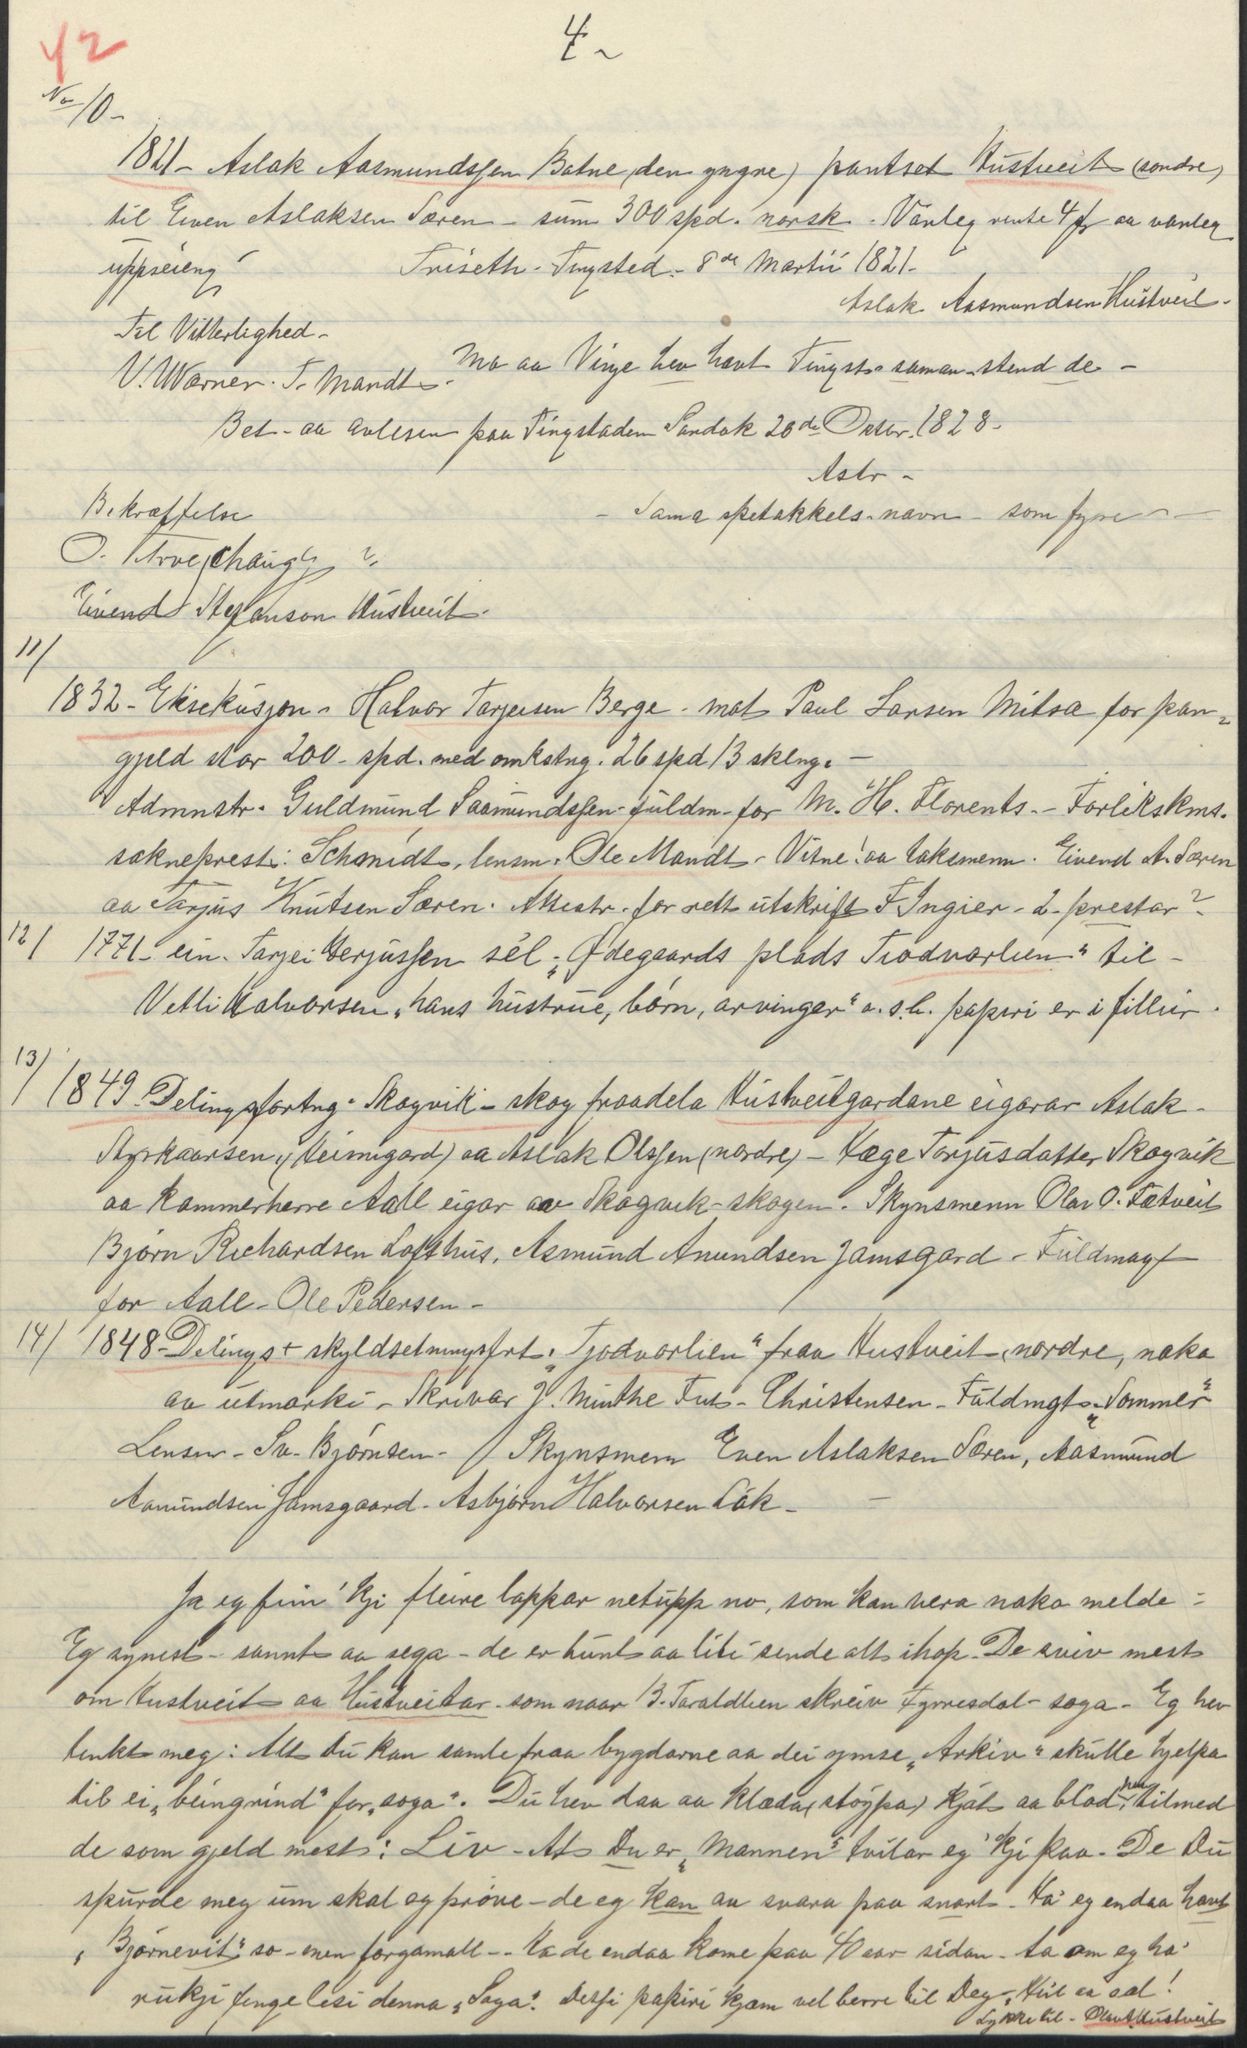 42
4
No 10-
1821- Aslak Aasmundssen Batne (den yngre) pantset Hustveit (sondre)
til Even Aslaksen Særen - sum 300 spd. norsk. Vanleg rente 4 aa vanleg
uppseieng
Triseth-Tingsted - 8de Martii 1821-
Aslak Aasmundsen Hustveit.
Til Vitterlighed -
V. Warner. T. Mandt. Mo aa Vinje hev havt Tingst. saman-stend de -
Bet- aa avlesen paa Tingstaden Sandok 20de Oktbr. 1828-
Astr -
Bekræftelse - Sama spetakkels-navn - som fyrr -
O. ?
Eivend Stefanson Hustveit.
11/
1832- Eksekusjon - Halvor Tarjeisen Berge - mot Paul Larsen Mitsa for pan-
gjeld stor 200 - spd. med omkstng. 26 spd 13 sklng. -
Admnstr. Guldmund Saamundssen - fuldm. for M. H. Florents. - Forlikskms.
sokneprest: Schmidt, lensm. Ole Mandt - Vitne! aa taksmenn. Eivend A. Særen
aa Tarjus Knutsen Særen. Attestr. for rett utskrift F Ingier - 2 - prestar?
12/ 1771- ein Tarjei Terjussen sel "Ødegaards plads Tiodvorlien" til -
Vetli Halvorsen "hans hustrue, børn, arvinger" o.s.b. papiri er i fillur.
13/ 1849 Delingsfortng. Skogvik - skog fraadela Hustveitgardane eigarar Aslak
Styrkaarsen, (Heimigard) aa Aslak Olssen (nordre) - Hæge Torjusdatter Skogvik
aa Kammerherre Aall eigar av Skogvik-skogen. Skynsmenn Olav O. Tætveit
Bjørn Richardsen Lofthus, Asmund Anundsen Jamsgard - Fuldmagt
for Aall - Ole Pedersen -
14/ 1848- Delings + skyldsetningsfrt. "Tjodvorlien" fraa Hustveit (nordre, noko
av utmarki - Skrivar J. Munthe Fut - Christensen - Fuldmgt "Sommer"
Lensm - Sv. Bjørnsen - / Skynsmenn Even Aslaksen Særen, Aasmund
Aanundsen Jamsgaard - Asbjørn Halvorsen Lok -
Ja eg finn' kji fleire lappar netupp no, som kan vera noko melde -
Eg synest - sannt aa sega - de er tunt aa liti sende alt ihop. De sviv mest
om Hustveit aa Hustveitar - som naar B. Taraldlien skreiv Fyrresdal - soga - Eg hev
tenkt meg: Alt du kan samle fraa bygdarne aa dei ymse "Arkiv" skulle hjelpa
til ei "beingrind" for "soga". Du hev daa aa klæda (støypa) kjøt aa blod, tilmed
de som gjeld mest: Liv - At Du er "Mannen" tvilar eg' kji paa - De Du
spurde meg um skal eg prøve - de eg kan aa svara paa snart - Ha' eg endaa havt
"Bjørnevit" so - men forgamall - - Ha de endaa kome paa 40 aar sidan - ta om eg ha'
rukji fenge lesi denna "Soga". Dessi papiri kjæm vel berre til Deg - Hŭil aa sæl!
Lykke til - Olav A Hustveit